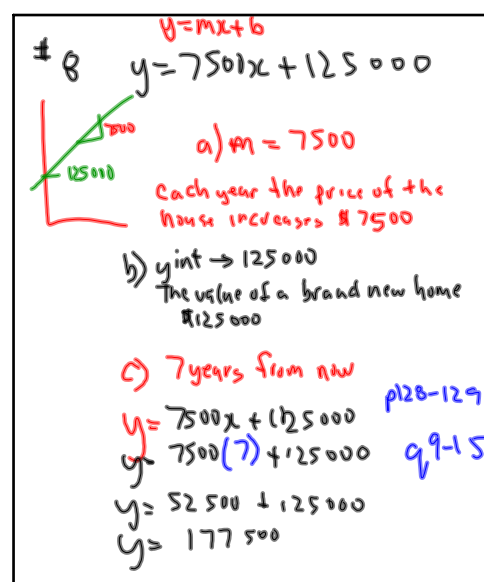 y=mx+b
# 8 y=7500x+125000
7500
125000
a) m = 7500
each year the price of the
house increases $7500
b) y int → 125000
The value of a brand new home
$125000
c) 7 years from now
y= 7500x + 125000
p128-129
y= 7500(7) + 125000
q 9-15
y= 52500 + 125000
y= 177500